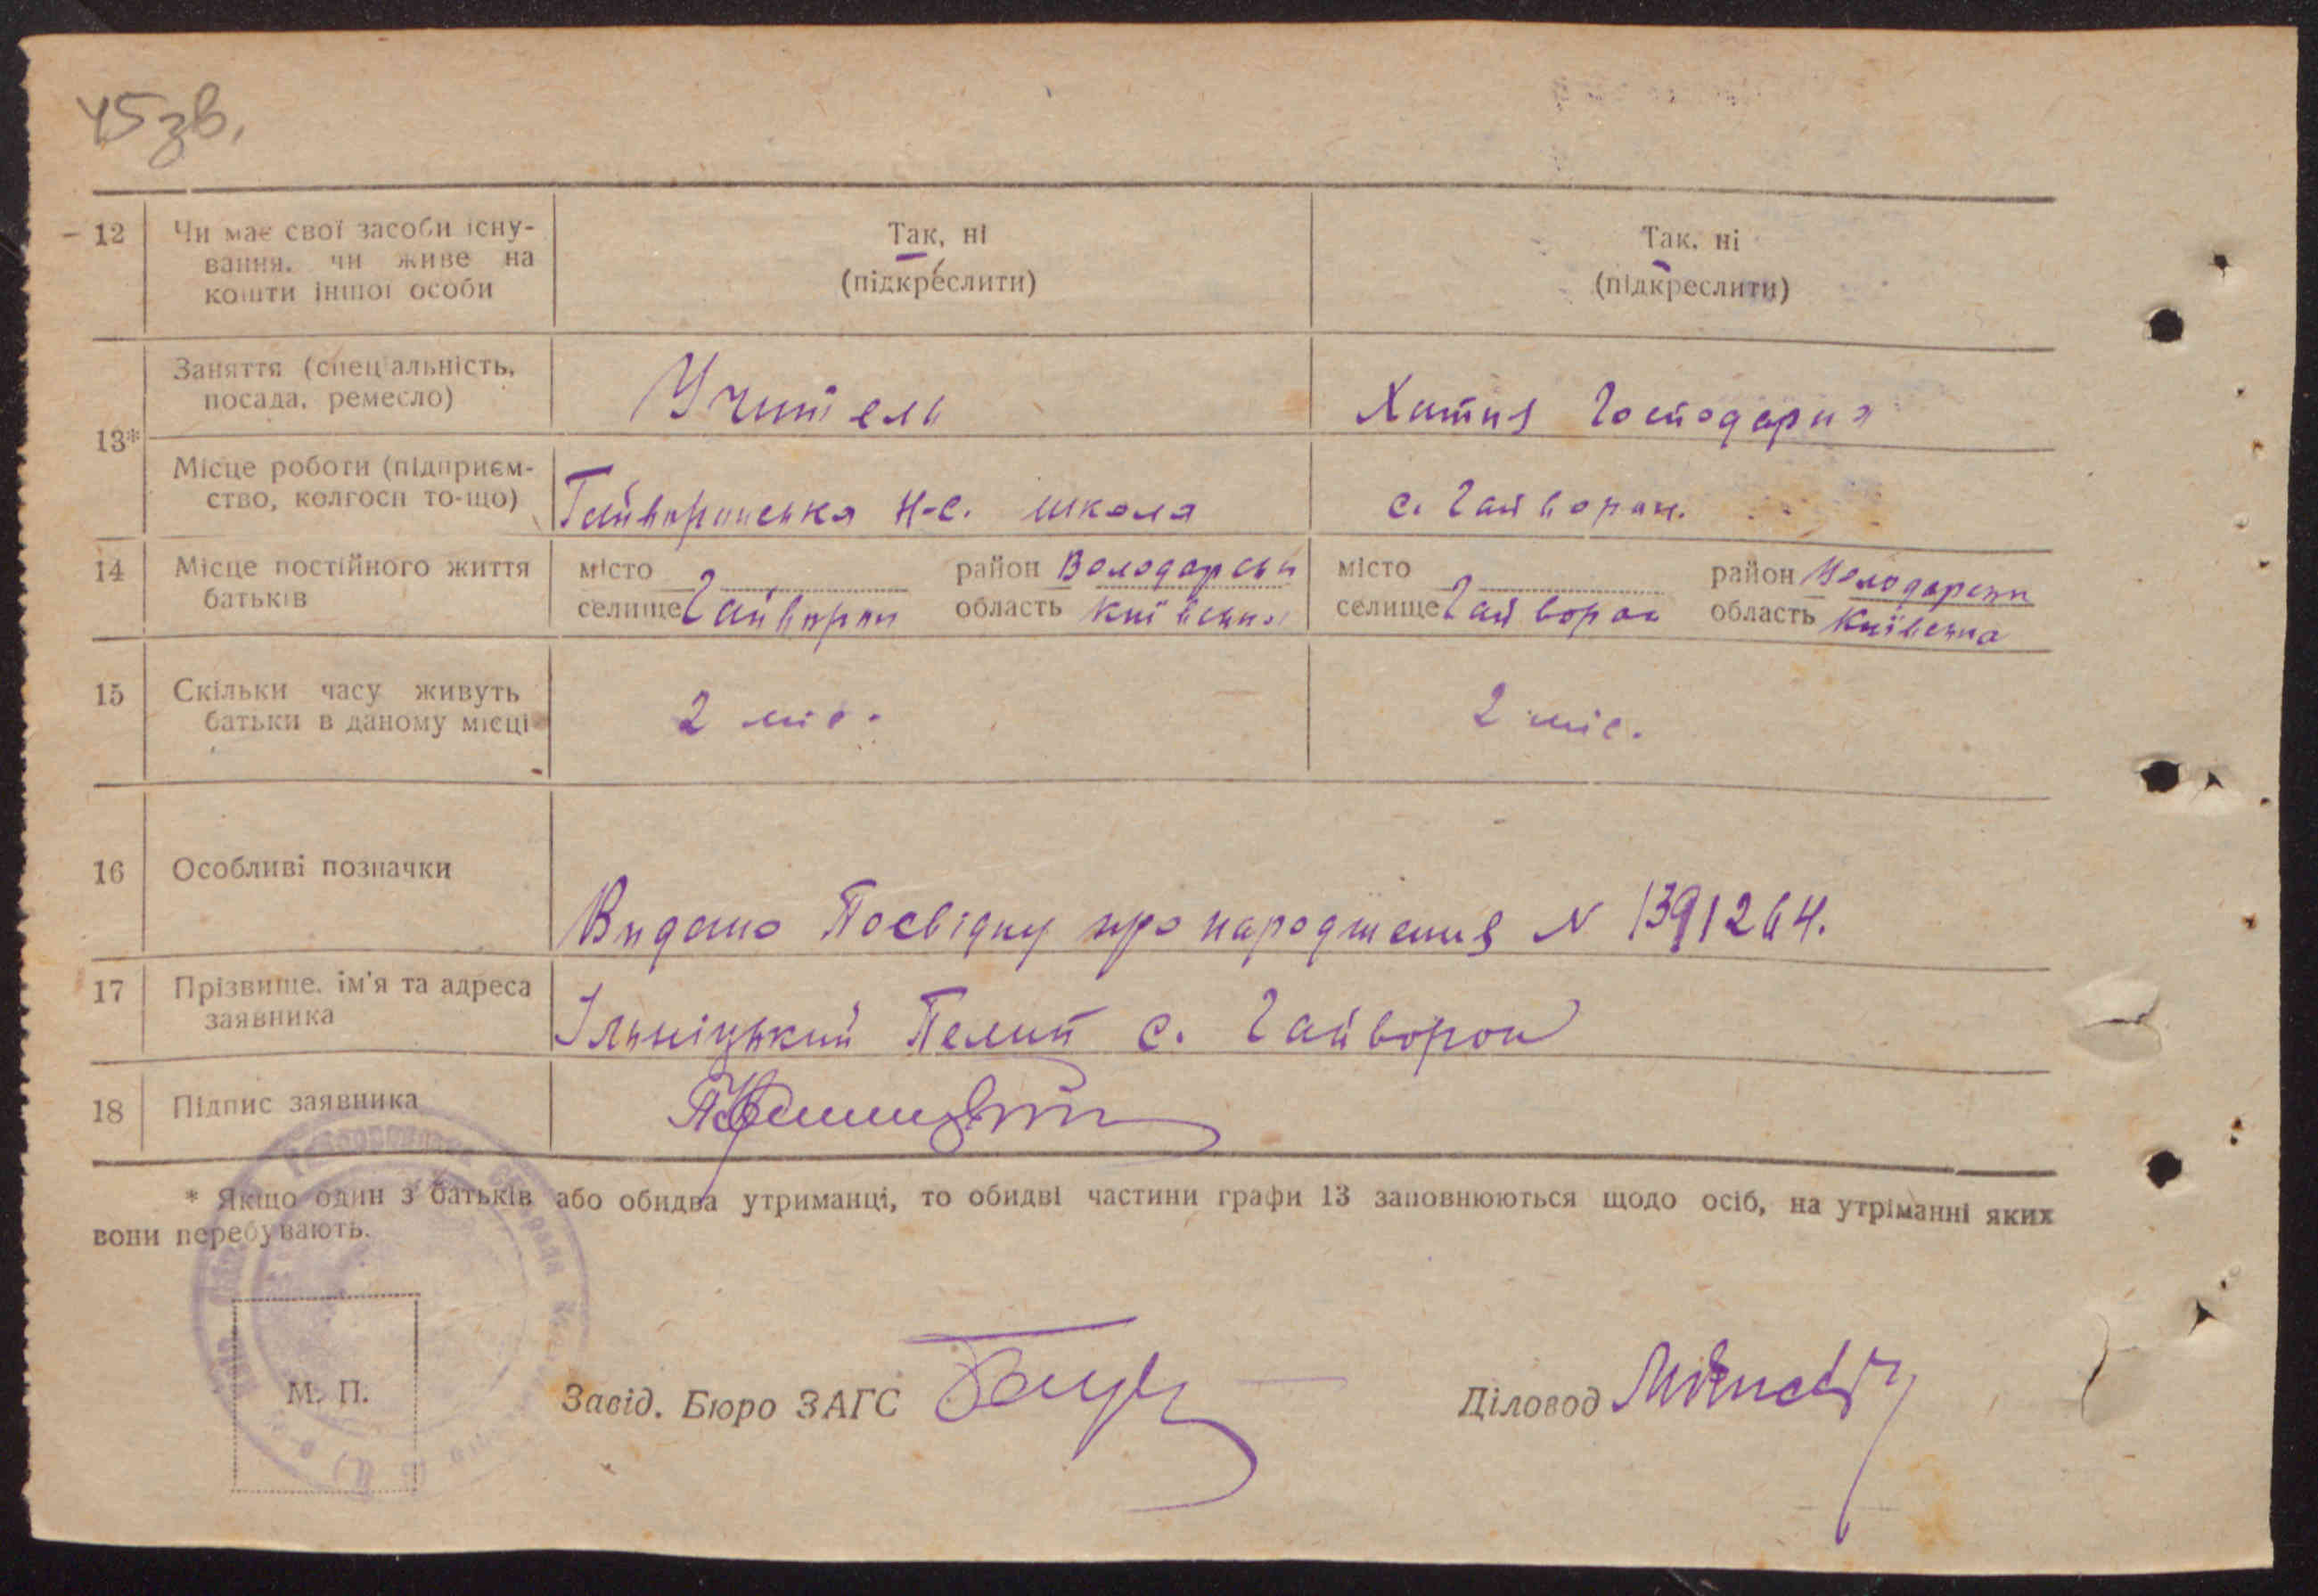 45зв.
12 Чи має свої засоби існу- Так, ні Так, ні
вання, чи живе на (підкреслити) (підкреслити)
кошти іншої особи
13* Заняття (спеціальність, Учитель Хатня Господарня
посада, ремесло)
Місце роботи (підприєм- Гайворонська Н-С. школа с. Гайворон.
ство, колгосп то-що)
14 Місце постійного життя місто район Володарськ місто район Володарськ
батьків селище Гайворон область Київська селище Гайворон область Київська
15 Скільки часу живуть 2 міс. 2 міс.
батьки в даному місці
16 Особливі позначки
Видано Посвідку про народження N 1391264.
17 Прізвище, ім'я та адреса Ільніцький Пелип с. Гайворон
заявника
18 Підпис заявника
* Якщо один з батьків або обидва утриманці, то обидві частини графи 13 заповнюються щодо осіб, на утріманні яких
вони перебувають.
М. П.
Завід. Бюро ЗАГС Діловод